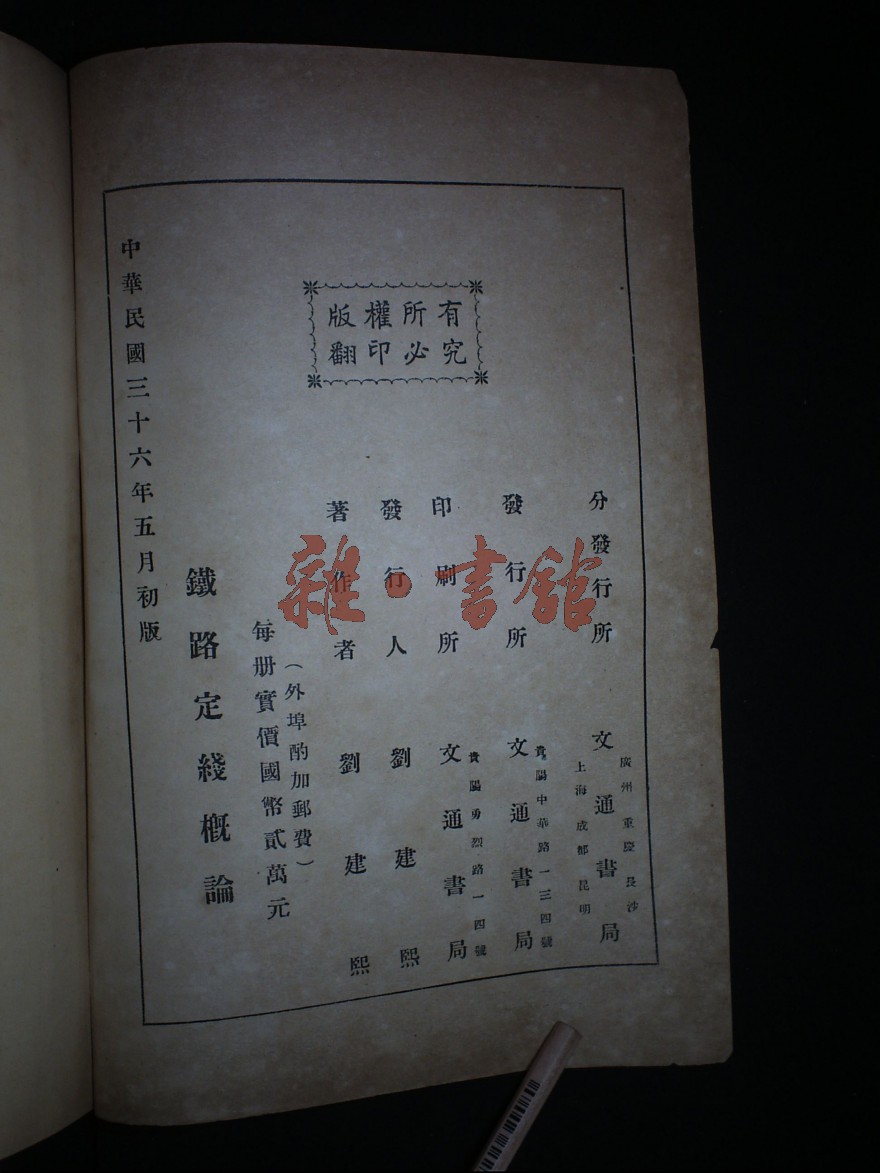 版權所有
翻印必究
中華民國三十六年五月初版
鐵路定綫概論
每册實價國幣貳萬元
（外埠酌加郵費）
著作者 劉建熙
發行人 劉建熙
印刷所 文通書局
貴陽勇烈路一四號
發行所 文通書局
貴陽中華路一三四號
分發行所 文通書局
上海 成都 昆明
廣州 重慶 長沙
雜·書館